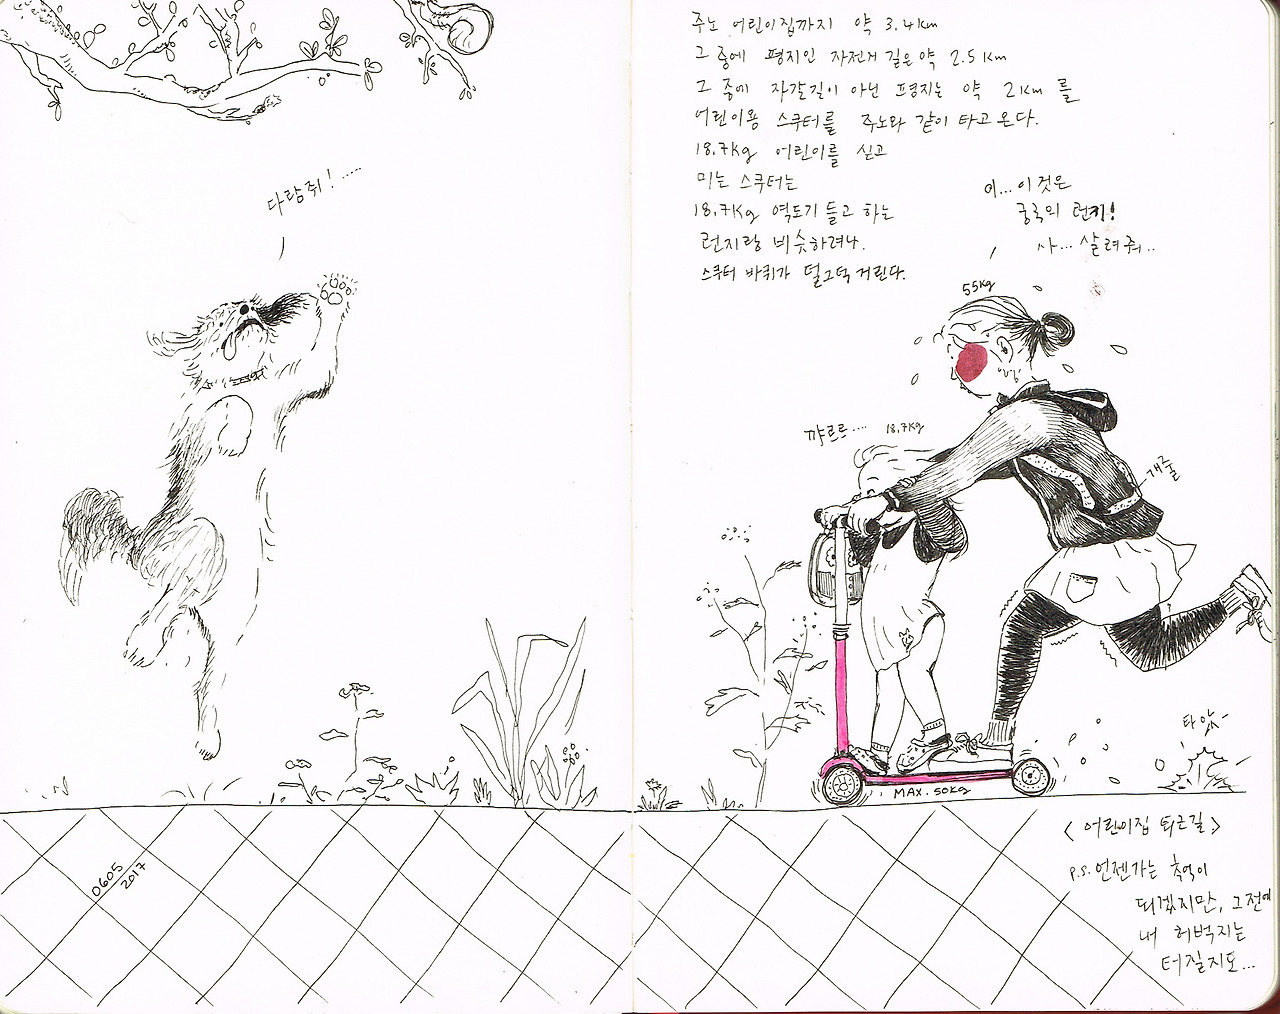 다람쥐!.....
0605
2017
주노 어린이집까지 약 3.4km
그 중에 평지인 자전거 길은 약 2.5km
그 중에 자갈길이 아닌 평지는 약 2km를
어린이용 스쿠터를 주노와 같이 타고 온다.
18.7kg 어린이를 싣고
미는 스쿠터는
18.7kg 역도기 들고 하는
런지랑 비슷하려나.
스쿠터 바퀴가 덜그덕 거린다.
이...이것은
궁극의 런지!
사...살려줘..
55kg
꺄르르....
18.7kg
개줄
타앗-
MAX. 50kg
<어린이집 퇴근길>
p.s. 언젠가는 추억이
되겠지만, 그전에
내 허벅지는
터질지도...